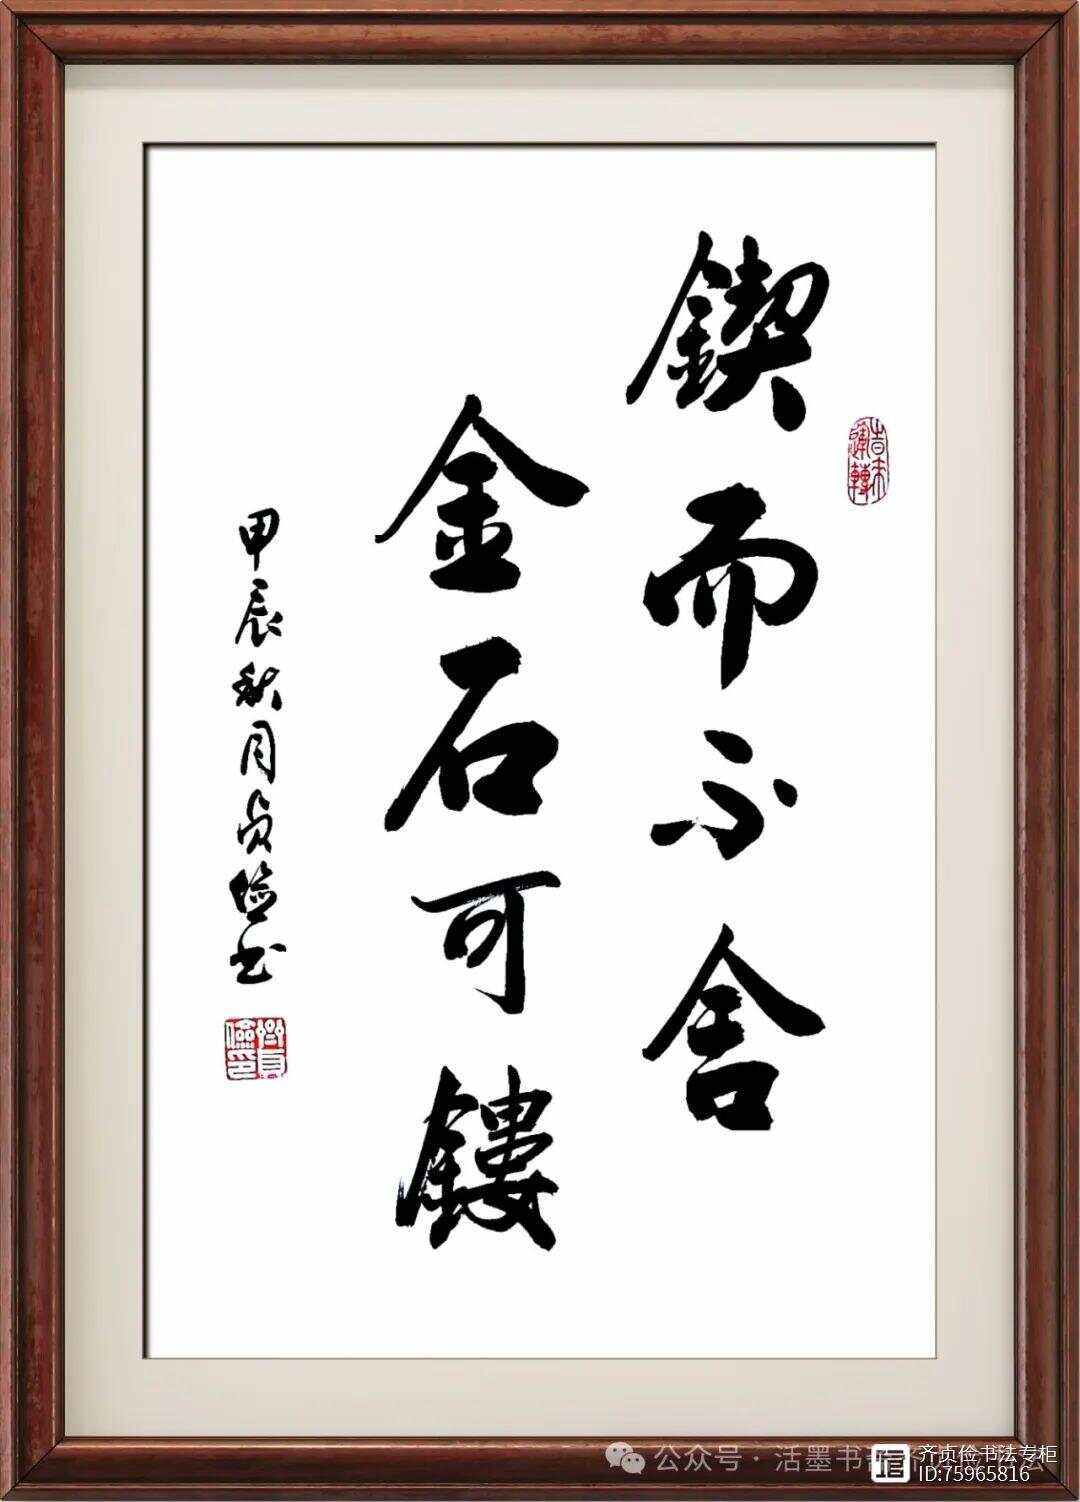 鍥而不舍
金石可鏤
甲辰秋月贞俭书
公众号·活墨书
齐贞俭书法专柜
ID:75965816